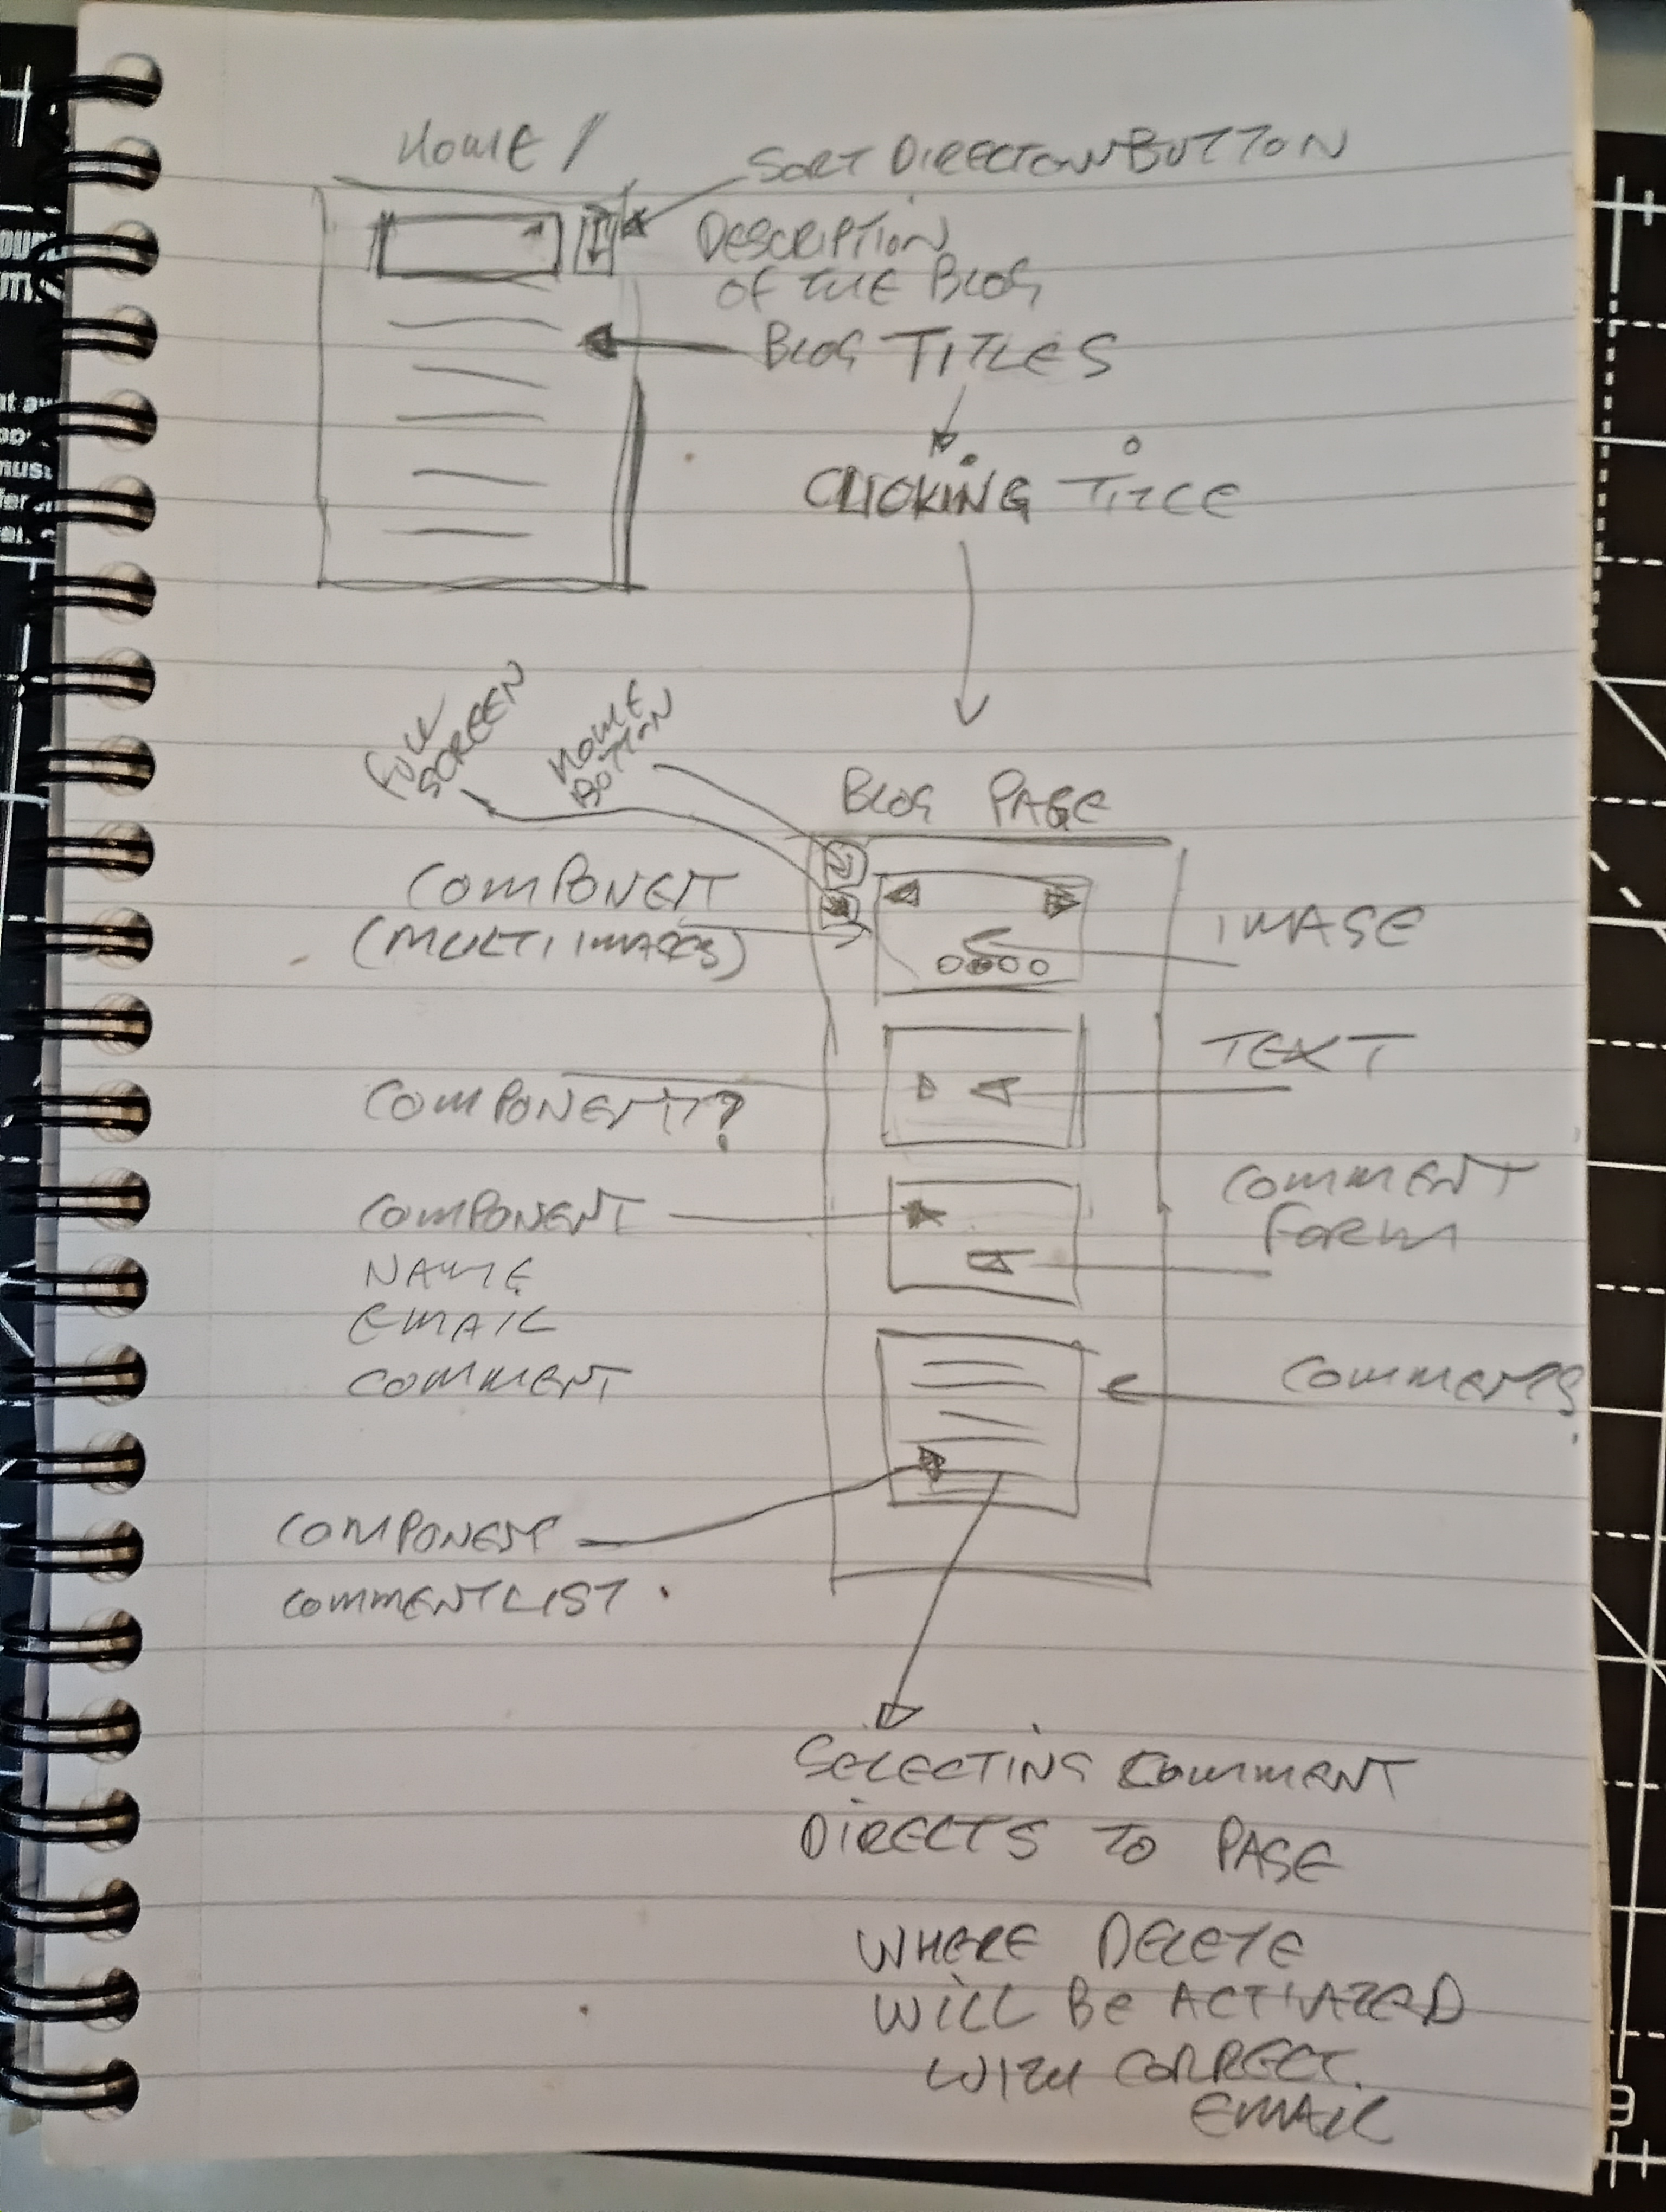 HOME /
SORT DIRECTION BUTTON
DESCRIPTION
OF THE BLOG
BLOG TITLES
CLICKING TITLE
FULL
SCREEN
HOME
BOTTON
BLOG PAGE
COMPONENT
(MULTI IMAGES)
IMAGE
TEXT
COMPONENT?
COMMENT
FORM
COMPONENT
NAME
EMAIL
COMMENT
COMMENTS
COMPONENT
COMMENT LIST
SELECTING COMMENT
DIRECTS TO PAGE
WHERE DELETE
WILL BE ACTIVATED
WITH CORRECT
EMAIL